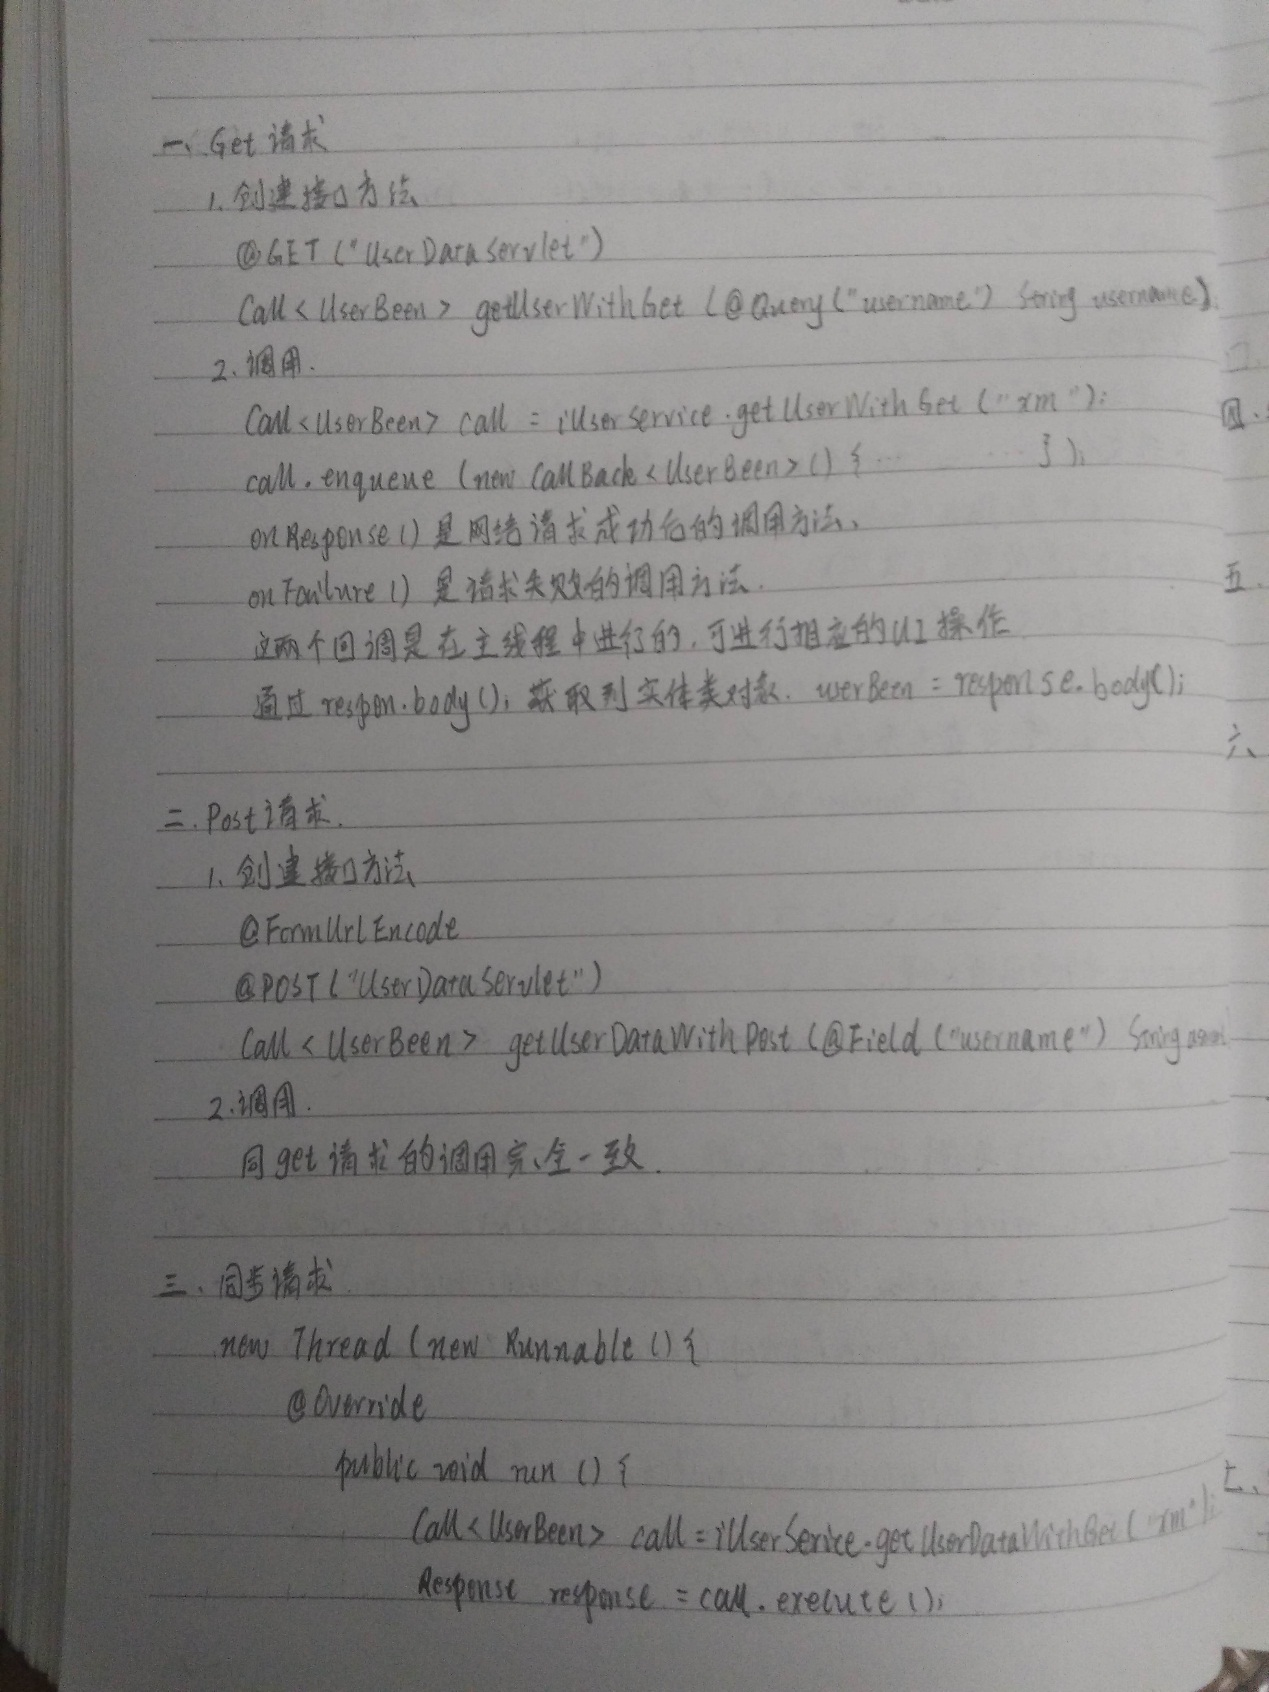 一、Get 请求
1. 创建接口方法
@GET ("UserDataServlet")
Call<UserBeen> getUserWithGet (@Query("username") String username).
2. 调用.
Call<UserBeen> call = iUserService.getUserWithGet ("xm");
call.enqueue (new CallBack<UserBeen>() {... ... });
onResponse() 是网络请求成功后的调用方法、
onFailure() 是请求失败的调用方法.
这两个回调是在主线程中进行的,可进行相应的UI操作
通过 respon.body(); 获取到实体类对象. userBeen = response.body();
二. Post请求.
1. 创建接口方法
@FormUrlEncode
@POST ("UserDataServlet")
Call<UserBeen> getUserDataWithPost (@Field ("username") String
2. 调用.
同get请求的调用完全一致.
三、同步请求
new Thread (new Runnable () {
@Override
public void run () {
Call<UserBeen> call = iUserSerice.getUserDataWithGet ("xm");
Response response = call.execute ();
四、
五.
六、
七、